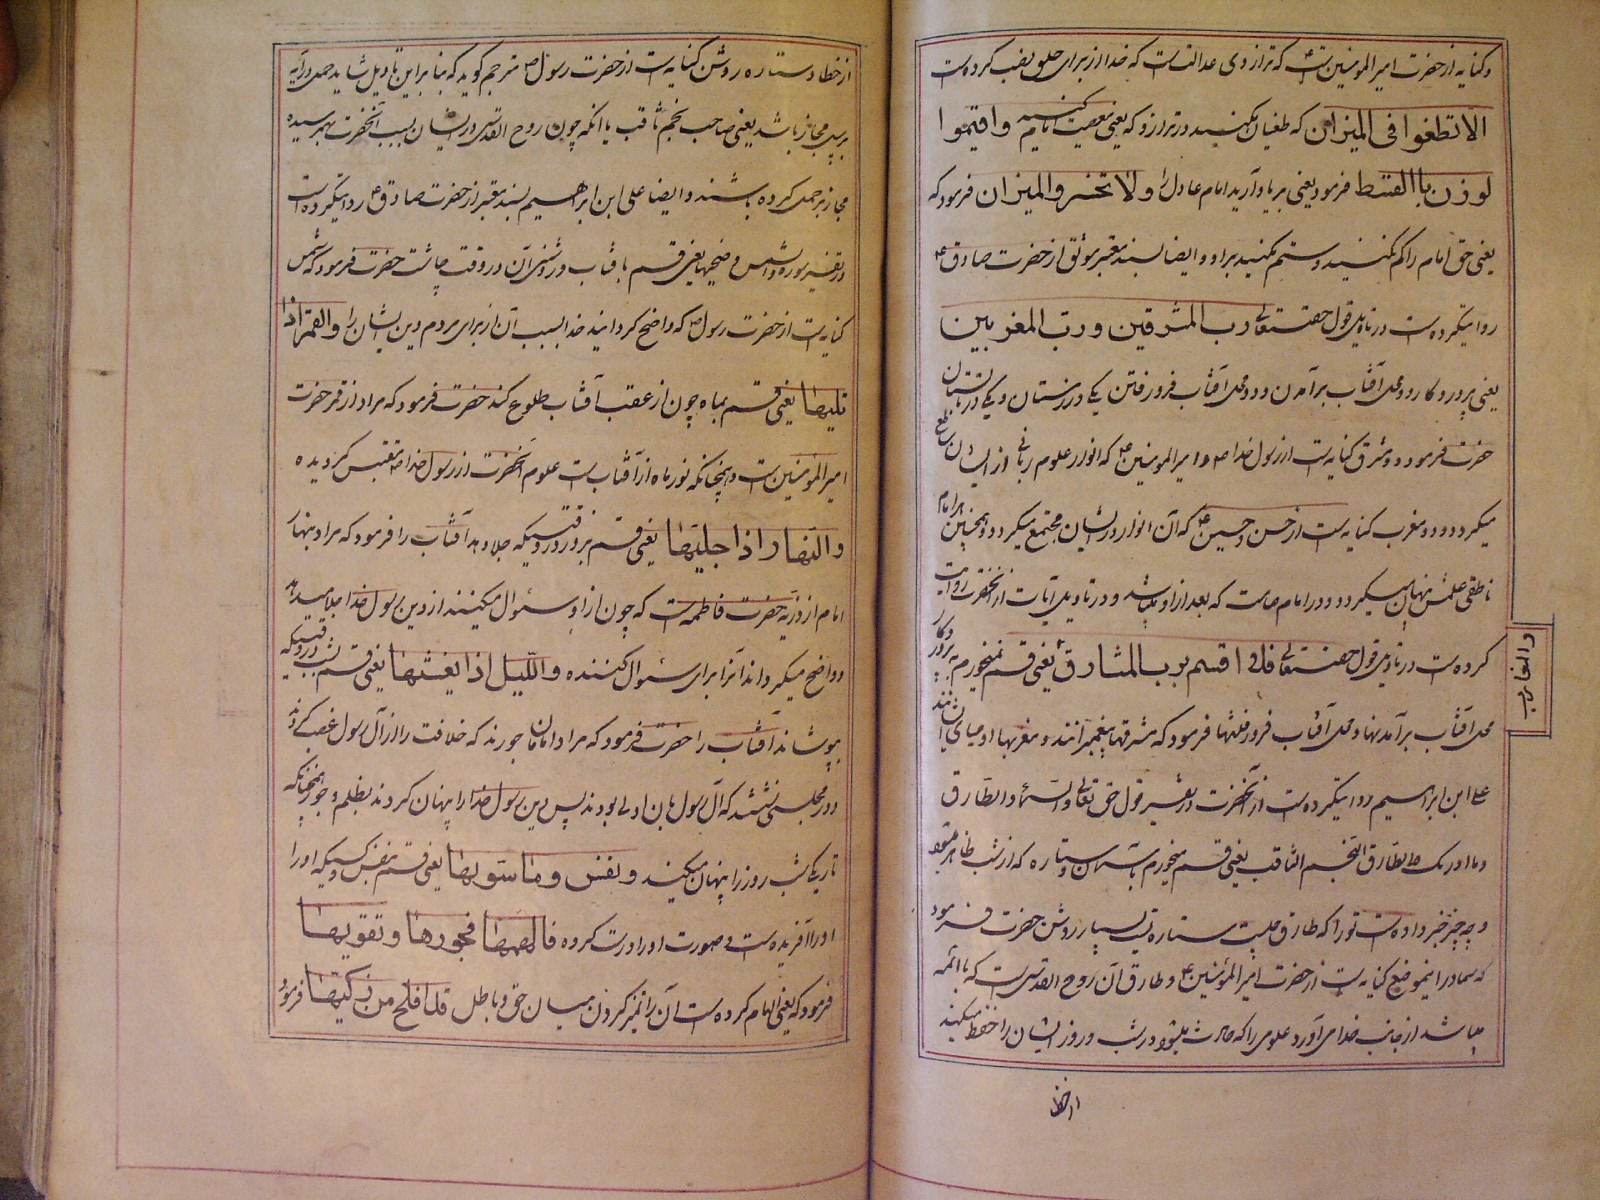 و کنایه از حضرت امیر المومنین است که ترازوی عدالت است که خدا از برای خلق نصب کرده است
الا تطغوا فی المیزان که طغیان مکنید در ترازو که یعنی معصیت امام مکنید و اقیموا
لوزن باالقسط فرمود یعنی برپا دارید امام عادل را و لا تخسروالمیزان فرمود که
یعنی حق امام را کم مکنید و ستم مکنید بر او و ایضا بسند معتبر موثق از حضرت صادق ع
روایتکرده است در تاویل قول حقتعالی رب المشرقین و رب المغربین
یعنی پروردکار دو محل آفتاب برآمدن و دو محل آفتاب فرورفتن یکی در زمستان و یکی در تابستان
حضرت فرمود دو مشرق کنایه است از رسول خدا ص و امیر المومنین ع که انوار علوم ربانی از ایشان ساطع
میکردد و دو مغرب کنایه است از حسن و حسین ع که آن انوار در ایشان مجتمع میکردد و همچنین هر امام
ناطقی علمش پنهان میکردد در امام صامت که بعد از او میباشد و در تاویل آیات از آنحضرت روایت
کرده است در تاویل قول حقتعالی فلا اقسم برب المشارق یعنی قسم نمیخورم به پروردکار
والمغارب
محل آفتاب برآمدنها و محل آفتاب فرو رفتنها فرمود که مشرقها پیغمبرانند و مغربها اوصیای ایشانند
علی ابن ابراهیم روایتکرده است از آنحضرت در تفسیر قول حق تعالی والسماء والطارق
وما ادریک ما الطارق النجم الثاقب یعنی قسم میخورم بآسمان و ستاره که از شب ظاهر میشود
و چه چیز خبر داده است تو را که طارق چیست ستاره ایست بسیار روشن حضرت فرمود
که سما در اینموضع کنایه است از حضرت امیر المؤمنین ع و طارق آن روح القدس است که با ائمه
میباشد از جانب خدا می آورد علومی را که حادث میشود در شب و روز ایشان را حفظ میکنید
از خطا
از خطا و ستاره روشن کنایه است از حضرت رسول ص مترجم کوید که بنا بر این تاویل شاید حمل درآیه
بر سبیل مجاز باشد یعنی صاحب نجم ثاقب یا انکه چون روح القدس در ایشان بسبب آنحضرت بهمرسیده
مجاز بر حمل کرده باشند و ایضا علی ابن ابراهیم بسند معتبر از حضرت صادق ع روایتکرده است
در تفسیر سوره والشمس وضحیها یعنی قسم بافتاب و روشنی آن در وقت چاشت حضرت فرمود که شمس
کنایه است از حضرت رسول ص که واضح کردانید خدا بسبب آن از برای مردم دین ایشان را والقمر اذا
تلیها یعنی قسم بماه چون از عقب آفتاب طلوع کند حضرت فرمود که مراد از قمر حضرت
امیر المومنین است و همچنانکه نور ماه از آفتاب است علوم آنحضرت از رسول خدا ص مقتبس کردیده
والنهار اذا جلیها یعنی قسم بروز در وقتیکه جلا دهد آفتاب را فرمود که مراد بنهار
امام از ذریه حضرت فاطمه است که چون از او سئوال میکنند از دین رسول خدا جلا میدهد
و واضح میکرداند آنرا برای سئوال کننده واللیل اذا یغشها یعنی قسم بشب در وقتیکه
بپوشاند آفتاب را حضرت فرمود که مراد امامان جورند که خلافت را از آل رسول غصب کردند
و در مجلسی نشستند که آل رسول بان اولی بودند پس دین رسول خدا را پنهان کردند بظلم و جور همچنانکه
تاریکی شب روز را پنهان میکند و نفس وما سویها یعنی قسم بنفس و کسیکه او را
او را آفریده است و صورت او را درست کرده فالهمها فجورها و تقویها
فرمود که یعنی الهام کرده است آن را تمیز کردن میان حق و باطل قد افلح من زکیها فرمود